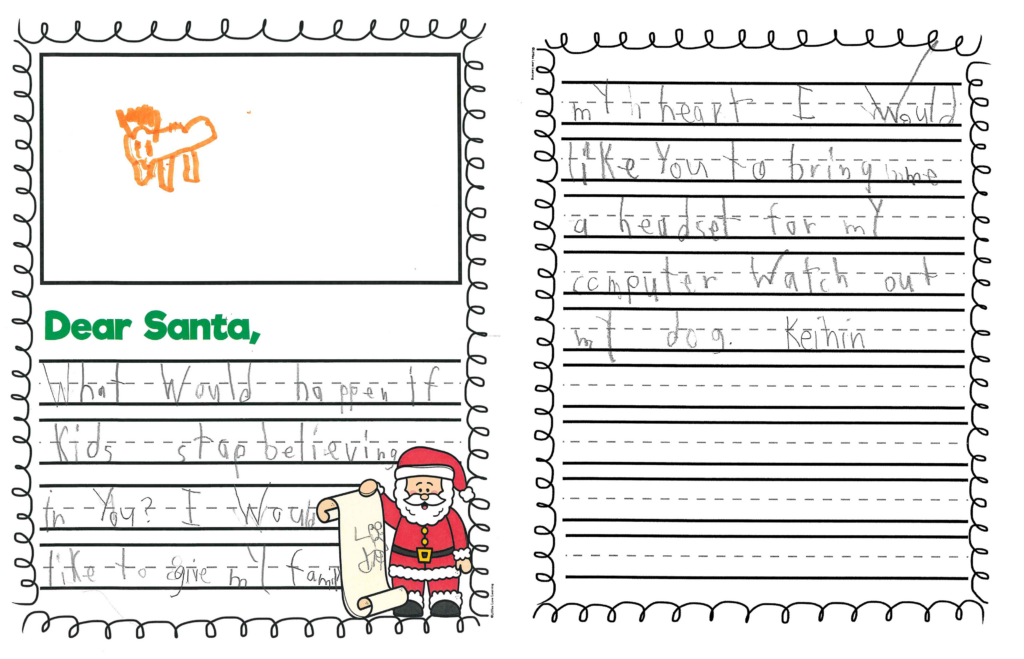 Dear Santa,
What Would happen if
Kids stop believing
in You? I Would
like to give mY famil
mY heart I Would
like You to bring me
a headset for mY
computer Watch out
mY dog. Keihin